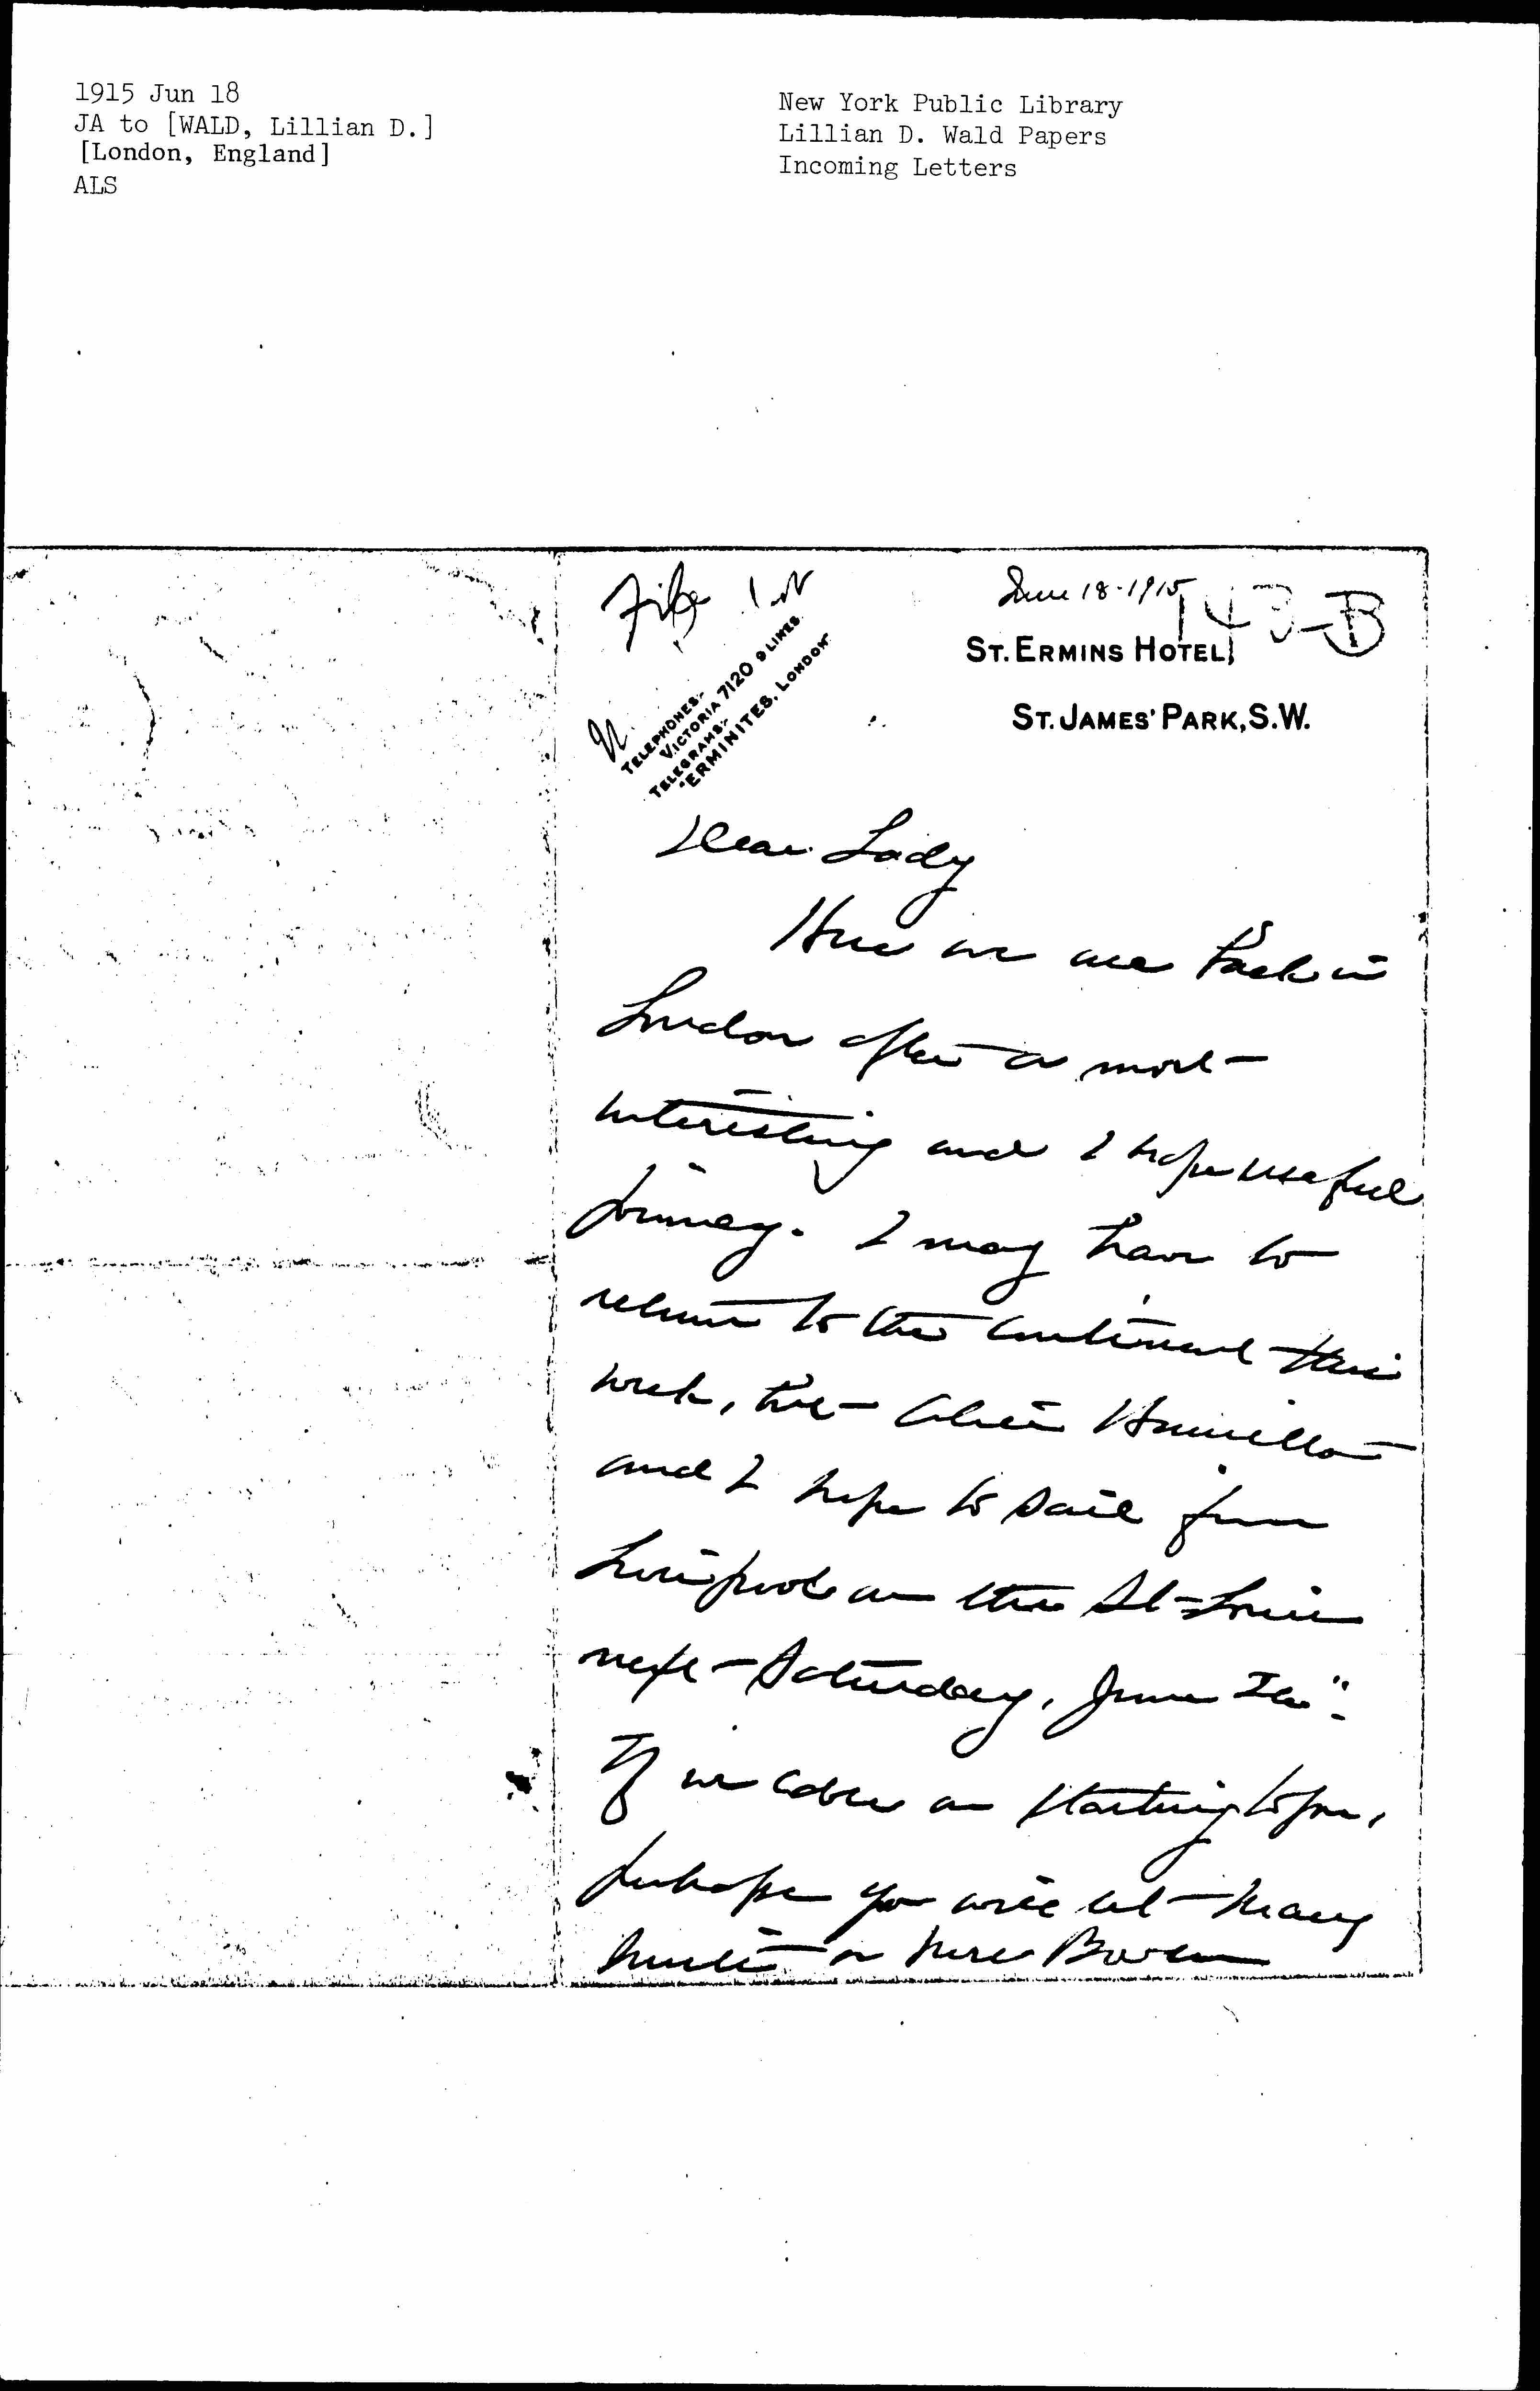 1915 Jun 18
JA to [WALD, Lillian D.]
[London, England]
ALS
New York Public Library
Lillian D. Wald Papers
Incoming Letters
File
June 18-1915
143-B
ST. ERMINS HOTEL,
ST. JAMES' PARK, S.W.
TELEPHONES:-
VICTORIA 7120 9 LINES.
TELEGRAMS:-
"ERMINITES, LONDON"
Dear Lady
Here we are back in
London after a most
interesting and I hope useful
journey. I may have to
return to the Continent this
week, but Alice Hamilton
and I hope to sail from
Liverpool on the St Louis
next Saturday, June
If we cable on starting to you,
perhaps you will let Mary
Smith or Mrs Bowen